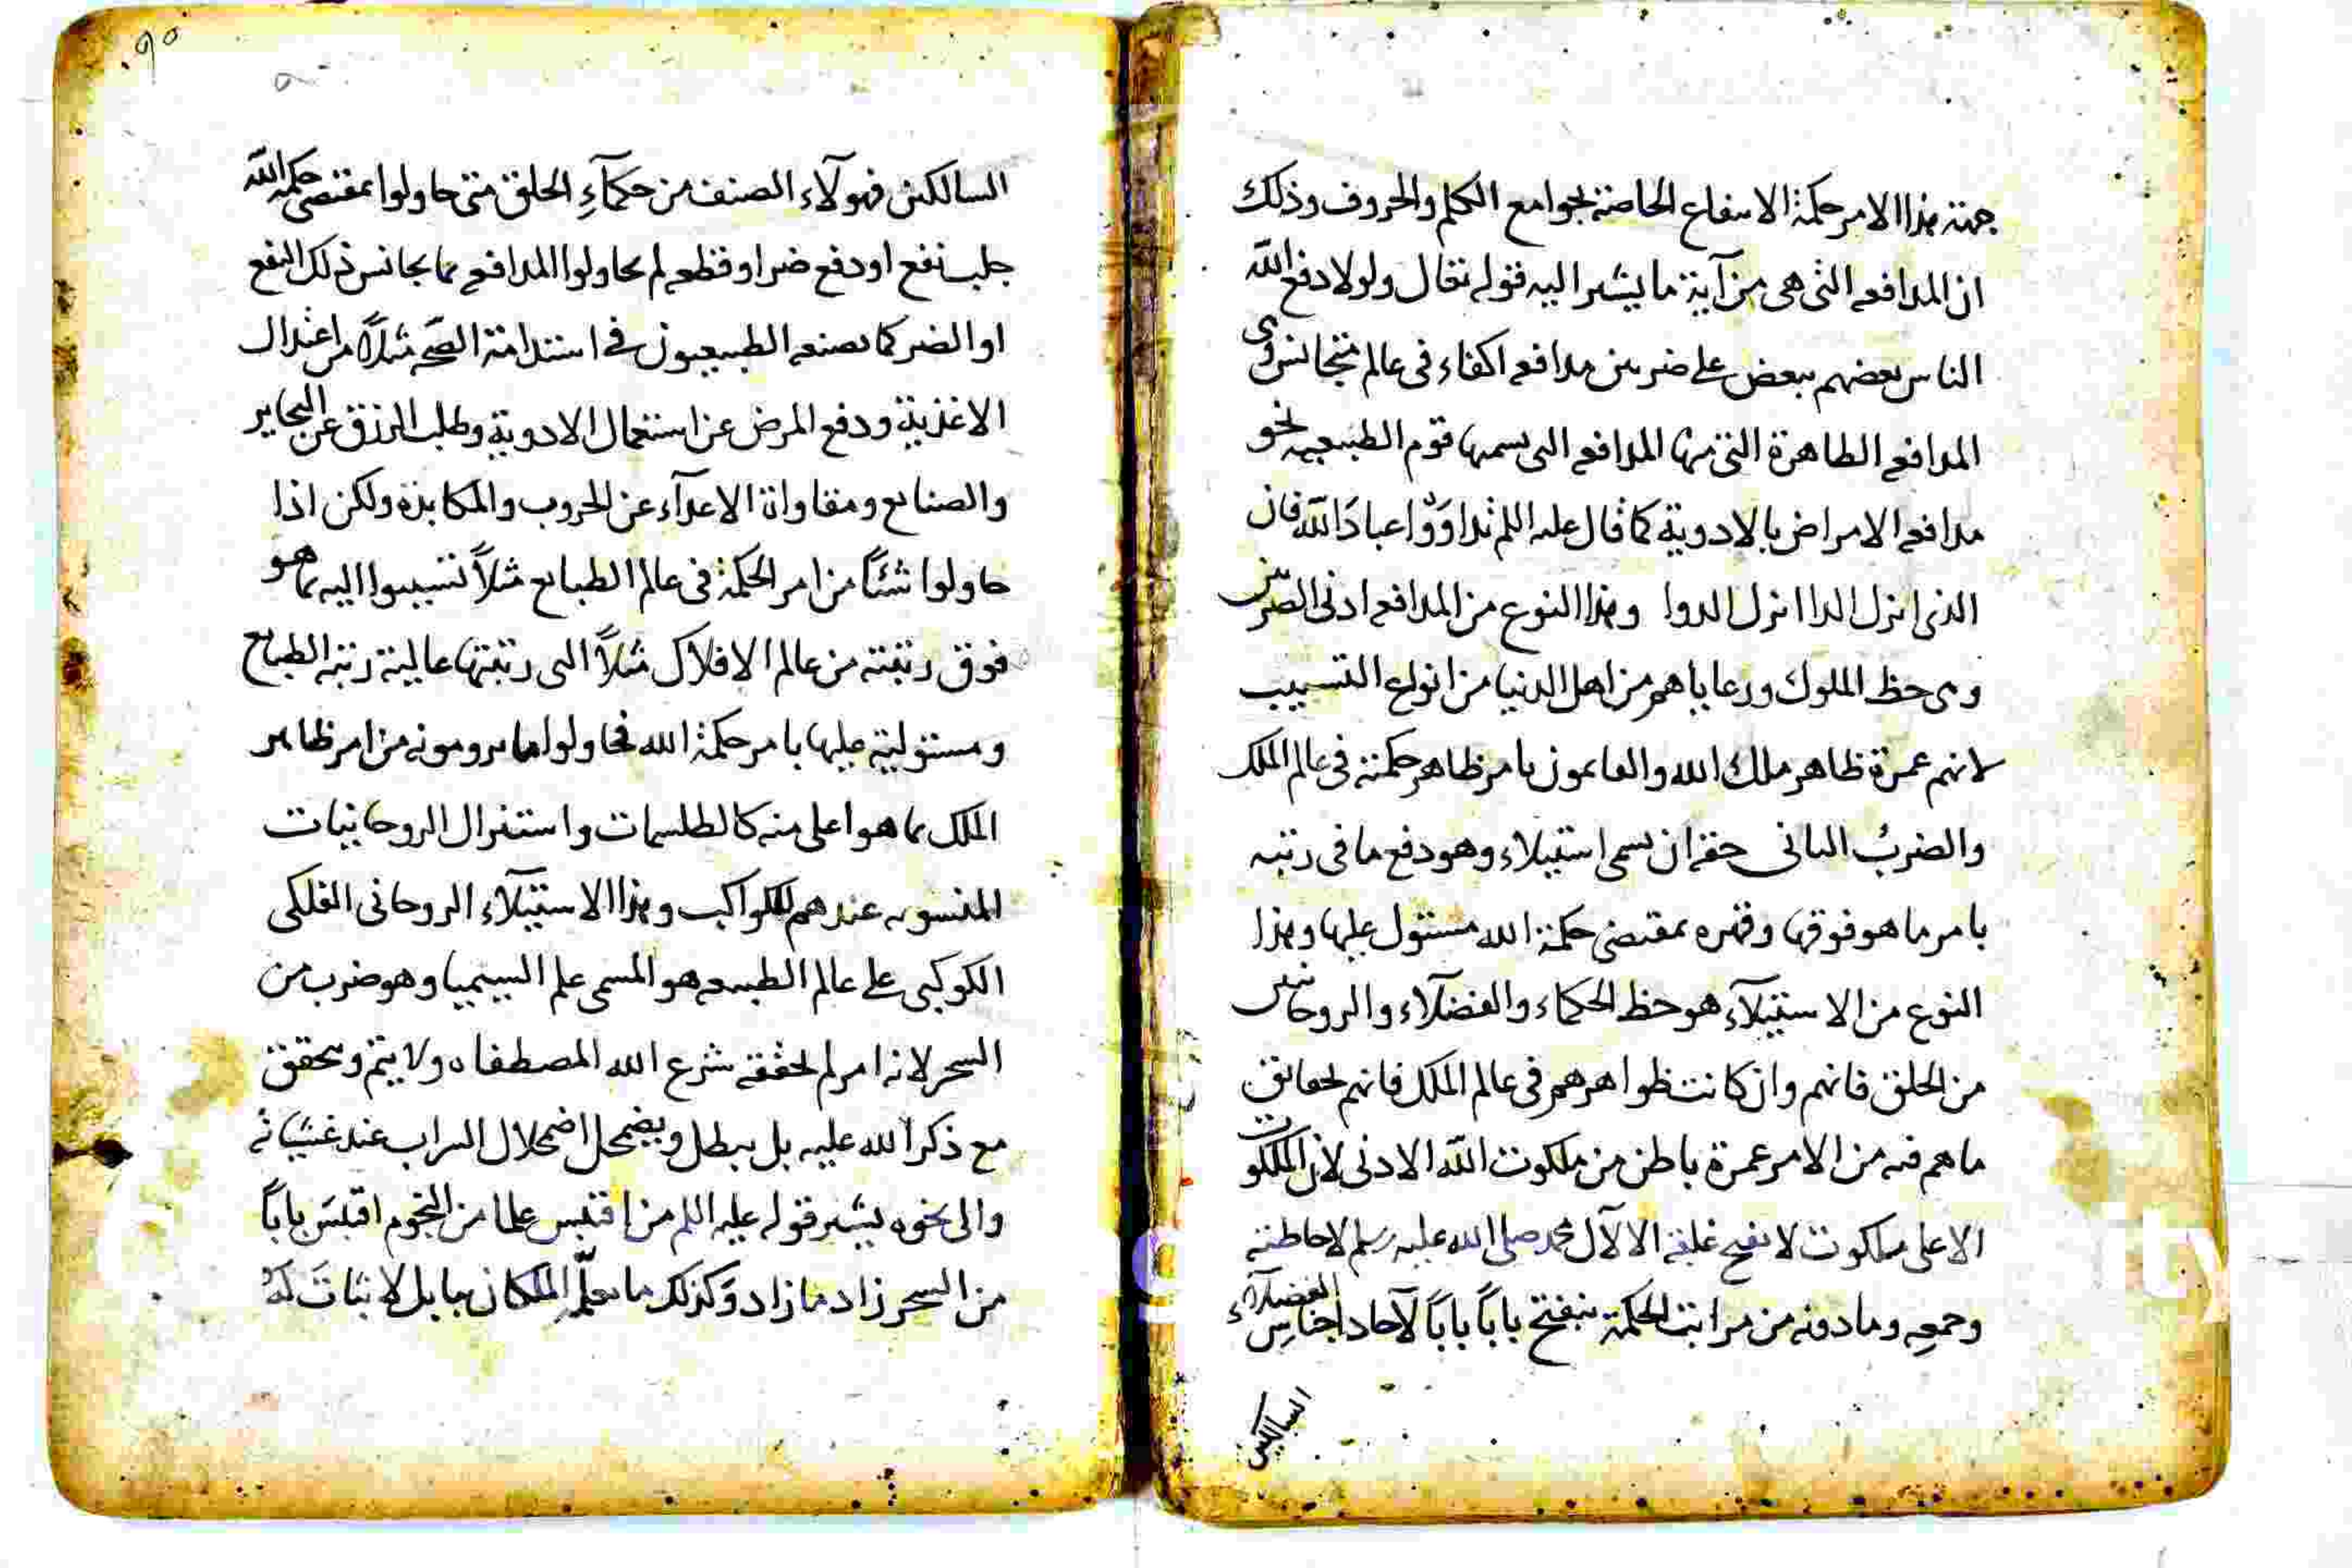 جهته هذا الامر حكمة الانتفاع الخاصة بجوامع الكلم والحروف وذلك
ان المدافعه التى هى من آية ما يشير اليه قوله تعالى ولولا دفع الله
الناس بعضهم ببعض على ضربين مدافعه اكفاء فى عالم متجانس وهى
المدافعه الظاهرة التى منها المدافعه التى يسميها قوم الطبيعيه نحو
مدافعه الامراض بالادوية كما قال عليه السلم تداووا عباد الله فان
الذى انزل الدا انزل الدوا وهذا النوع من المدافعه ادنى الضربين
وهى حظ الملوك ورعاياهم من اهل الدنيا من انواع التسبيب
لانهم عمرة ظاهر ملك الله والقايمون بامر ظاهر حكمته فى عالم الملك
والضرب الثانى حقه ان يسمى استيلاء وهو دفع ما فى رتبه
بامر ما هو فوقها وقهره بمقتضى حكمة الله مستول عليها وهذا
النوع من الاستيلآء هو حظ الحكماء والفضلآء والروحانيين
من الخلق فانهم وان كانت ظواهرهم فى عالم الملك فانهم لحقايق
ما هم فيه من الامر عمرة باطن من ملكوت الله الادنى لان الملكوت
الاعلى ملكوت لا يفتح غلقه الا لآل محمد صلى الله عليه وسلم لاحاطته
وجمعه وما دونه من مراتب الحكمة ينفتح باباً باباً لآحاد اجناس الفضلآء
السالكين
٩٥
السالكين فهولآء الصنف من حكمآء الخلق متى حاولوا بمقتضى حكمة الله
جلب نفع او دفع ضر او قطعه لم يحاولوا المدافعه بما يجانس ذلك النفع
او الضر كما يصنعه الطبيعيون فى استدامة الصحه مثلاً من اعتدال
الاغذية ودفع المرض عن استعمال الادوية وطلب الرزق عن المجاير
والصنايع ومقاواة الاعدآء عن الحروب والمكابدة ولكن اذا
حاولوا شئاً من امر الحكمة فى عالم الطبايع مثلاً تسببوا اليه بما هو
فوق رتبته من عالم الافلاك مثلاً التى رتبتها عالية رتبه الطبايع
ومستولية عليها بامر حكمة الله فحاولوا ما يرومونه من امر ظاهر
الملك بما هو اعلى منه كالطلسمات واستنزال الروحانيات
المنسوبه عندهم للكواكب وهذا الاستيلآء الروحانى الفلكى
الكوكبى على عالم الطبيعه هو المسمى علم السيميا وهو ضرب من
السحر لانه امر لم يحققه شرع الله المصطفاه ولا يتم ويتحقق
مع ذكر الله عليه بل يبطل ويضمحل اضمحلال السراب عند غشيانه
والى نحوه يشير قوله عليه السلم من اقتبس علما من النجوم اقتبس باباً
من السحر زاد ما زاد وكذلك ما يعلّمه الملكان ببابل لا ثبات له